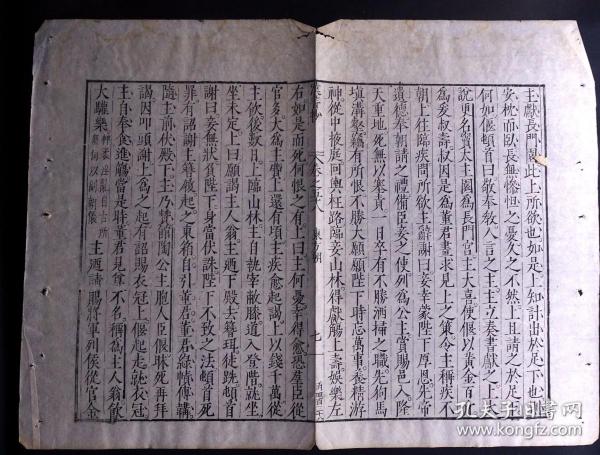 主獻長門園此上所欲也如是上知計出於足下也則
安枕而臥長無慘怛之憂久之不然上且請之於足下
何如偃頓首曰敬奉教入言之主主立奏書獻之上大
說更名竇太主園爲長門宮主大喜使偃以黃金百斤
爲爰叔壽叔因是爲董君畫求見上之策令主稱疾不
朝上往臨疾問所欲主辭謝曰妾幸蒙陛下厚恩先帝
遺德奉朝請之禮備臣妾之使列爲公主賞賜邑入隆
天重地死無以塞責一日卒有不勝洒掃之職先狗馬
塡溝壑竊有所恨不勝大願願陛下時忘萬事養精游
神從中掖庭回輿枉路臨妾山林得獻觴上壽娛樂左
卷之
東方朔
右如是而死何恨之有上曰主何憂幸得愈恐羣臣從
官多大爲主費上還有頃主疾愈起謁上以錢千萬從
主飲後數日上臨山林主自執宰敝膝道入登階就坐
坐未定上曰願謁主人翁主廼下殿去簪珥徒跣頓首
謝曰妾無狀負陛下身當伏誅陛下不致之法頓首死
罪有詔謝主簪履起之東箱自引董君董君綠幘傅韝
隨主前伏殿下主乃贊館陶公主胞人臣偃昧死再拜
謁因叩頭謝上爲之起有詔賜衣冠上偃起走就衣冠
主自奉食進觴當是時董君見尊不名稱爲主人翁飲
大驩樂主廼請賜將軍列侯從官金
孔夫子旧书网
www.kongfz.com